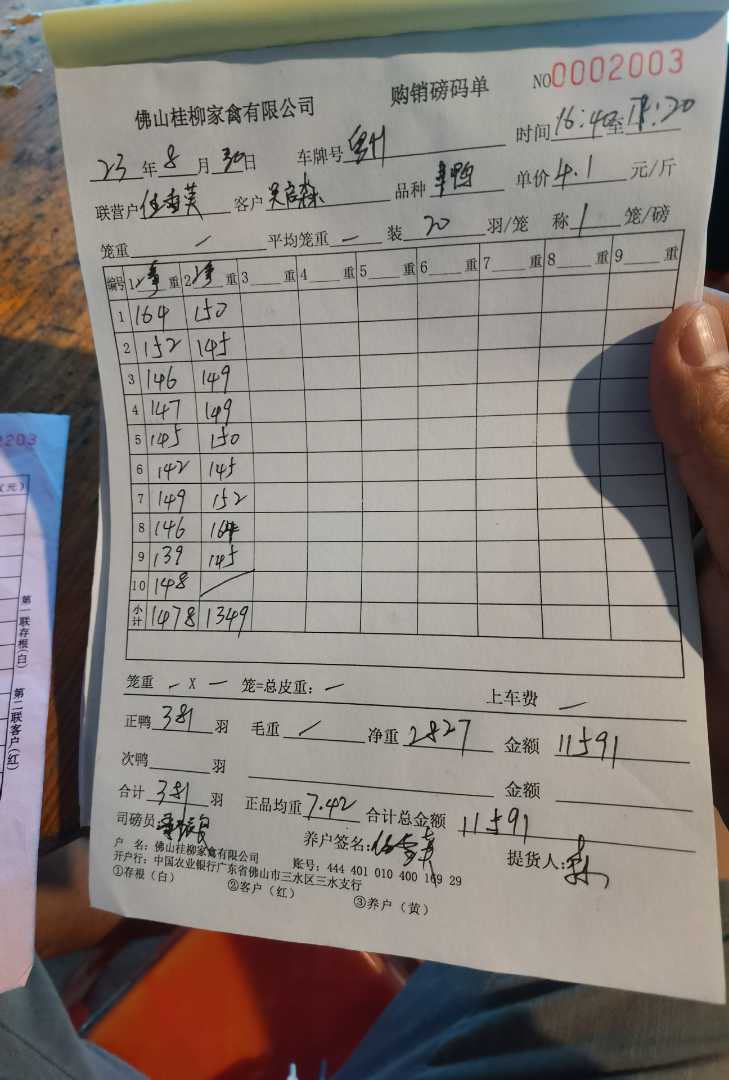 佛山桂柳家禽有限公司 购销磅码单 NO0002003
23年8月30日 车牌号 时间16:40至
联营户 客户吴启森 品种 鸭 单价4.1元/斤
笼重 — 平均笼重 — 装20羽/笼 称1笼/磅
编号 1 重 2 重 3 重 4 重 5 重 6 重 7 重 8 重 9 重
1 164 150
2 152 145
3 146 149
4 147 149
5 145 150
6 142 145
7 149 152
8 146 164
9 139 145
10 148
小计 1478 1349
笼重 — X — 笼=总皮重: — 上车费 —
正鸭381羽 毛重 / 净重2827 金额11591
次鸭 羽 金额
合计381羽 正品均重7.42 合计总金额11591
司磅员 养户签名: 提货人:
户 名: 佛山桂柳家禽有限公司 账号: 444 401 010 400 169 29
开户行: 中国农业银行广东省佛山市三水区三水支行
①存根(白) ②客户(红) ③养户(黄)
2203
(元)
第一联存根(白)
第二联客户(红)